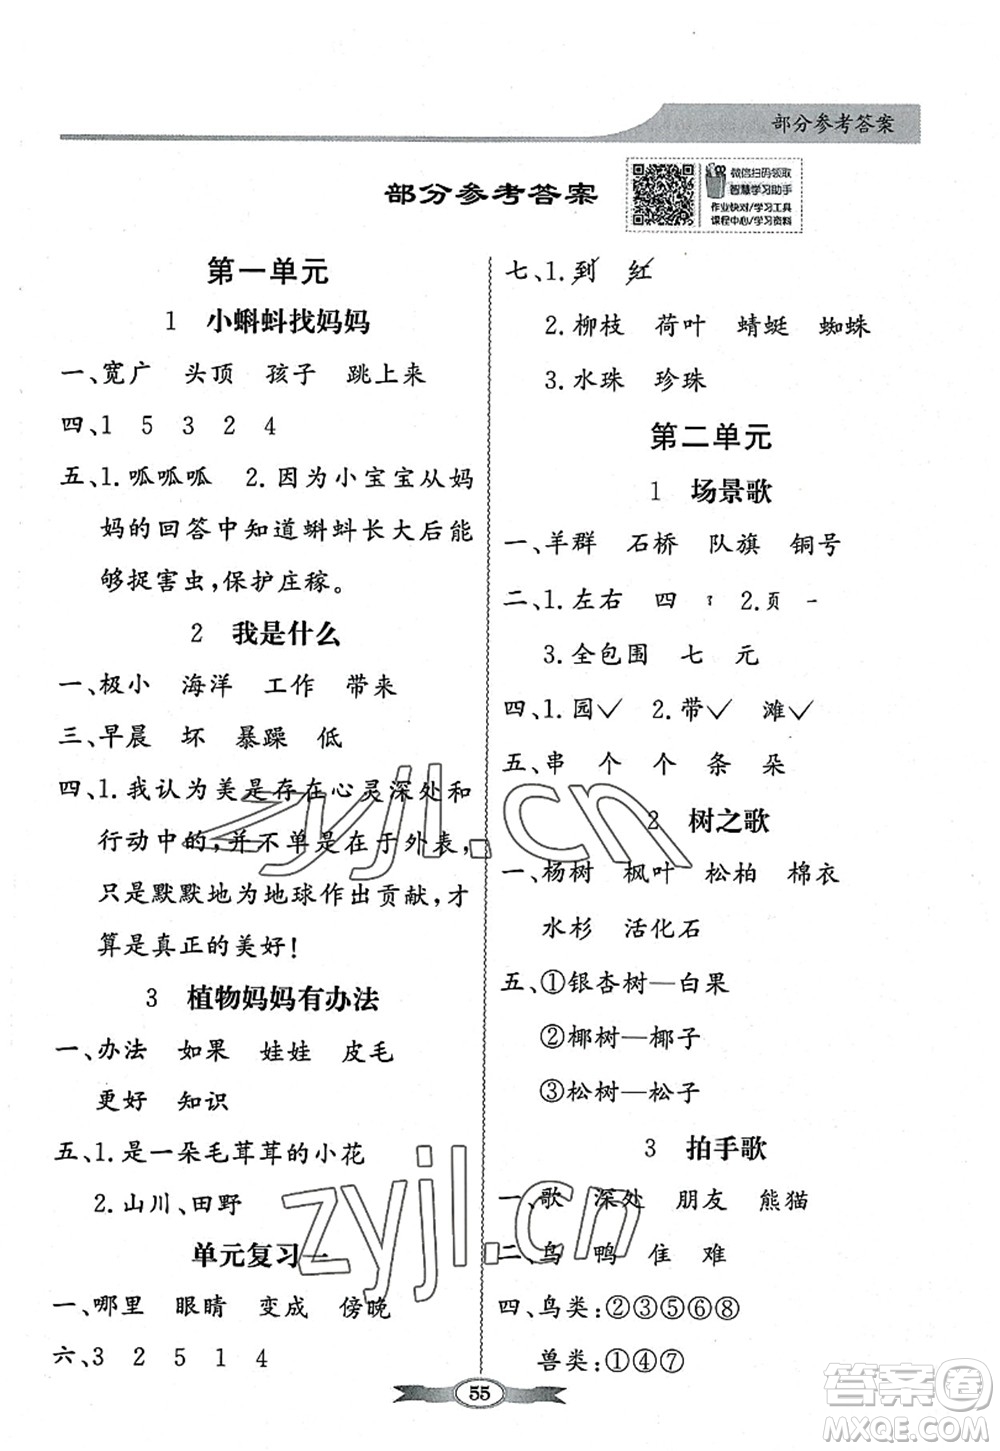 部分参考答案
部分参考答案
微信扫码领取
智慧学习助手
作业快对/学习工具
课程中心/学习资料
第一单元
1 小蝌蚪找妈妈
一、宽广 头顶 孩子 跳上来
四、1 5 3 2 4
五、1.呱呱呱 2.因为小宝宝从妈
妈的回答中知道蝌蚪长大后能
够捉害虫,保护庄稼。
2 我是什么
一、极小 海洋 工作 带来
三、早晨 坏 暴躁 低
四、1.我认为美是存在心灵深处和
行动中的,并不单是在于外表,
只是默默地为地球作出贡献,才
算是真正的美好!
3 植物妈妈有办法
一、办法 如果 娃娃 皮毛
更好 知识
五、1.是一朵毛茸茸的小花
2.山川、田野
单元复习一
一、哪里 眼睛 变成 傍晚
六、3 2 5 1 4
七、1.到 红
2.柳枝 荷叶 蜻蜓 蜘蛛
3.水珠 珍珠
第二单元
1 场景歌
一、羊群 石桥 队旗 铜号
二、1.左右 四 2.页
3.全包围 七 元
四、1.园✓ 2.带✓ 滩✓
五、串 个 个 条 朵
2 树之歌
一、杨树 枫叶 松柏 棉衣
水杉 活化石
五、①银杏树—白果
②椰树—椰子
③松树—松子
3 拍手歌
一、歌 深处 朋友 熊猫
二、鸟 鸭 隹 难
四、鸟类:②③⑤⑥⑧
兽类:①④⑦
55
zyjl.cn
zyjl.cn
答案圈
MXQE.COM